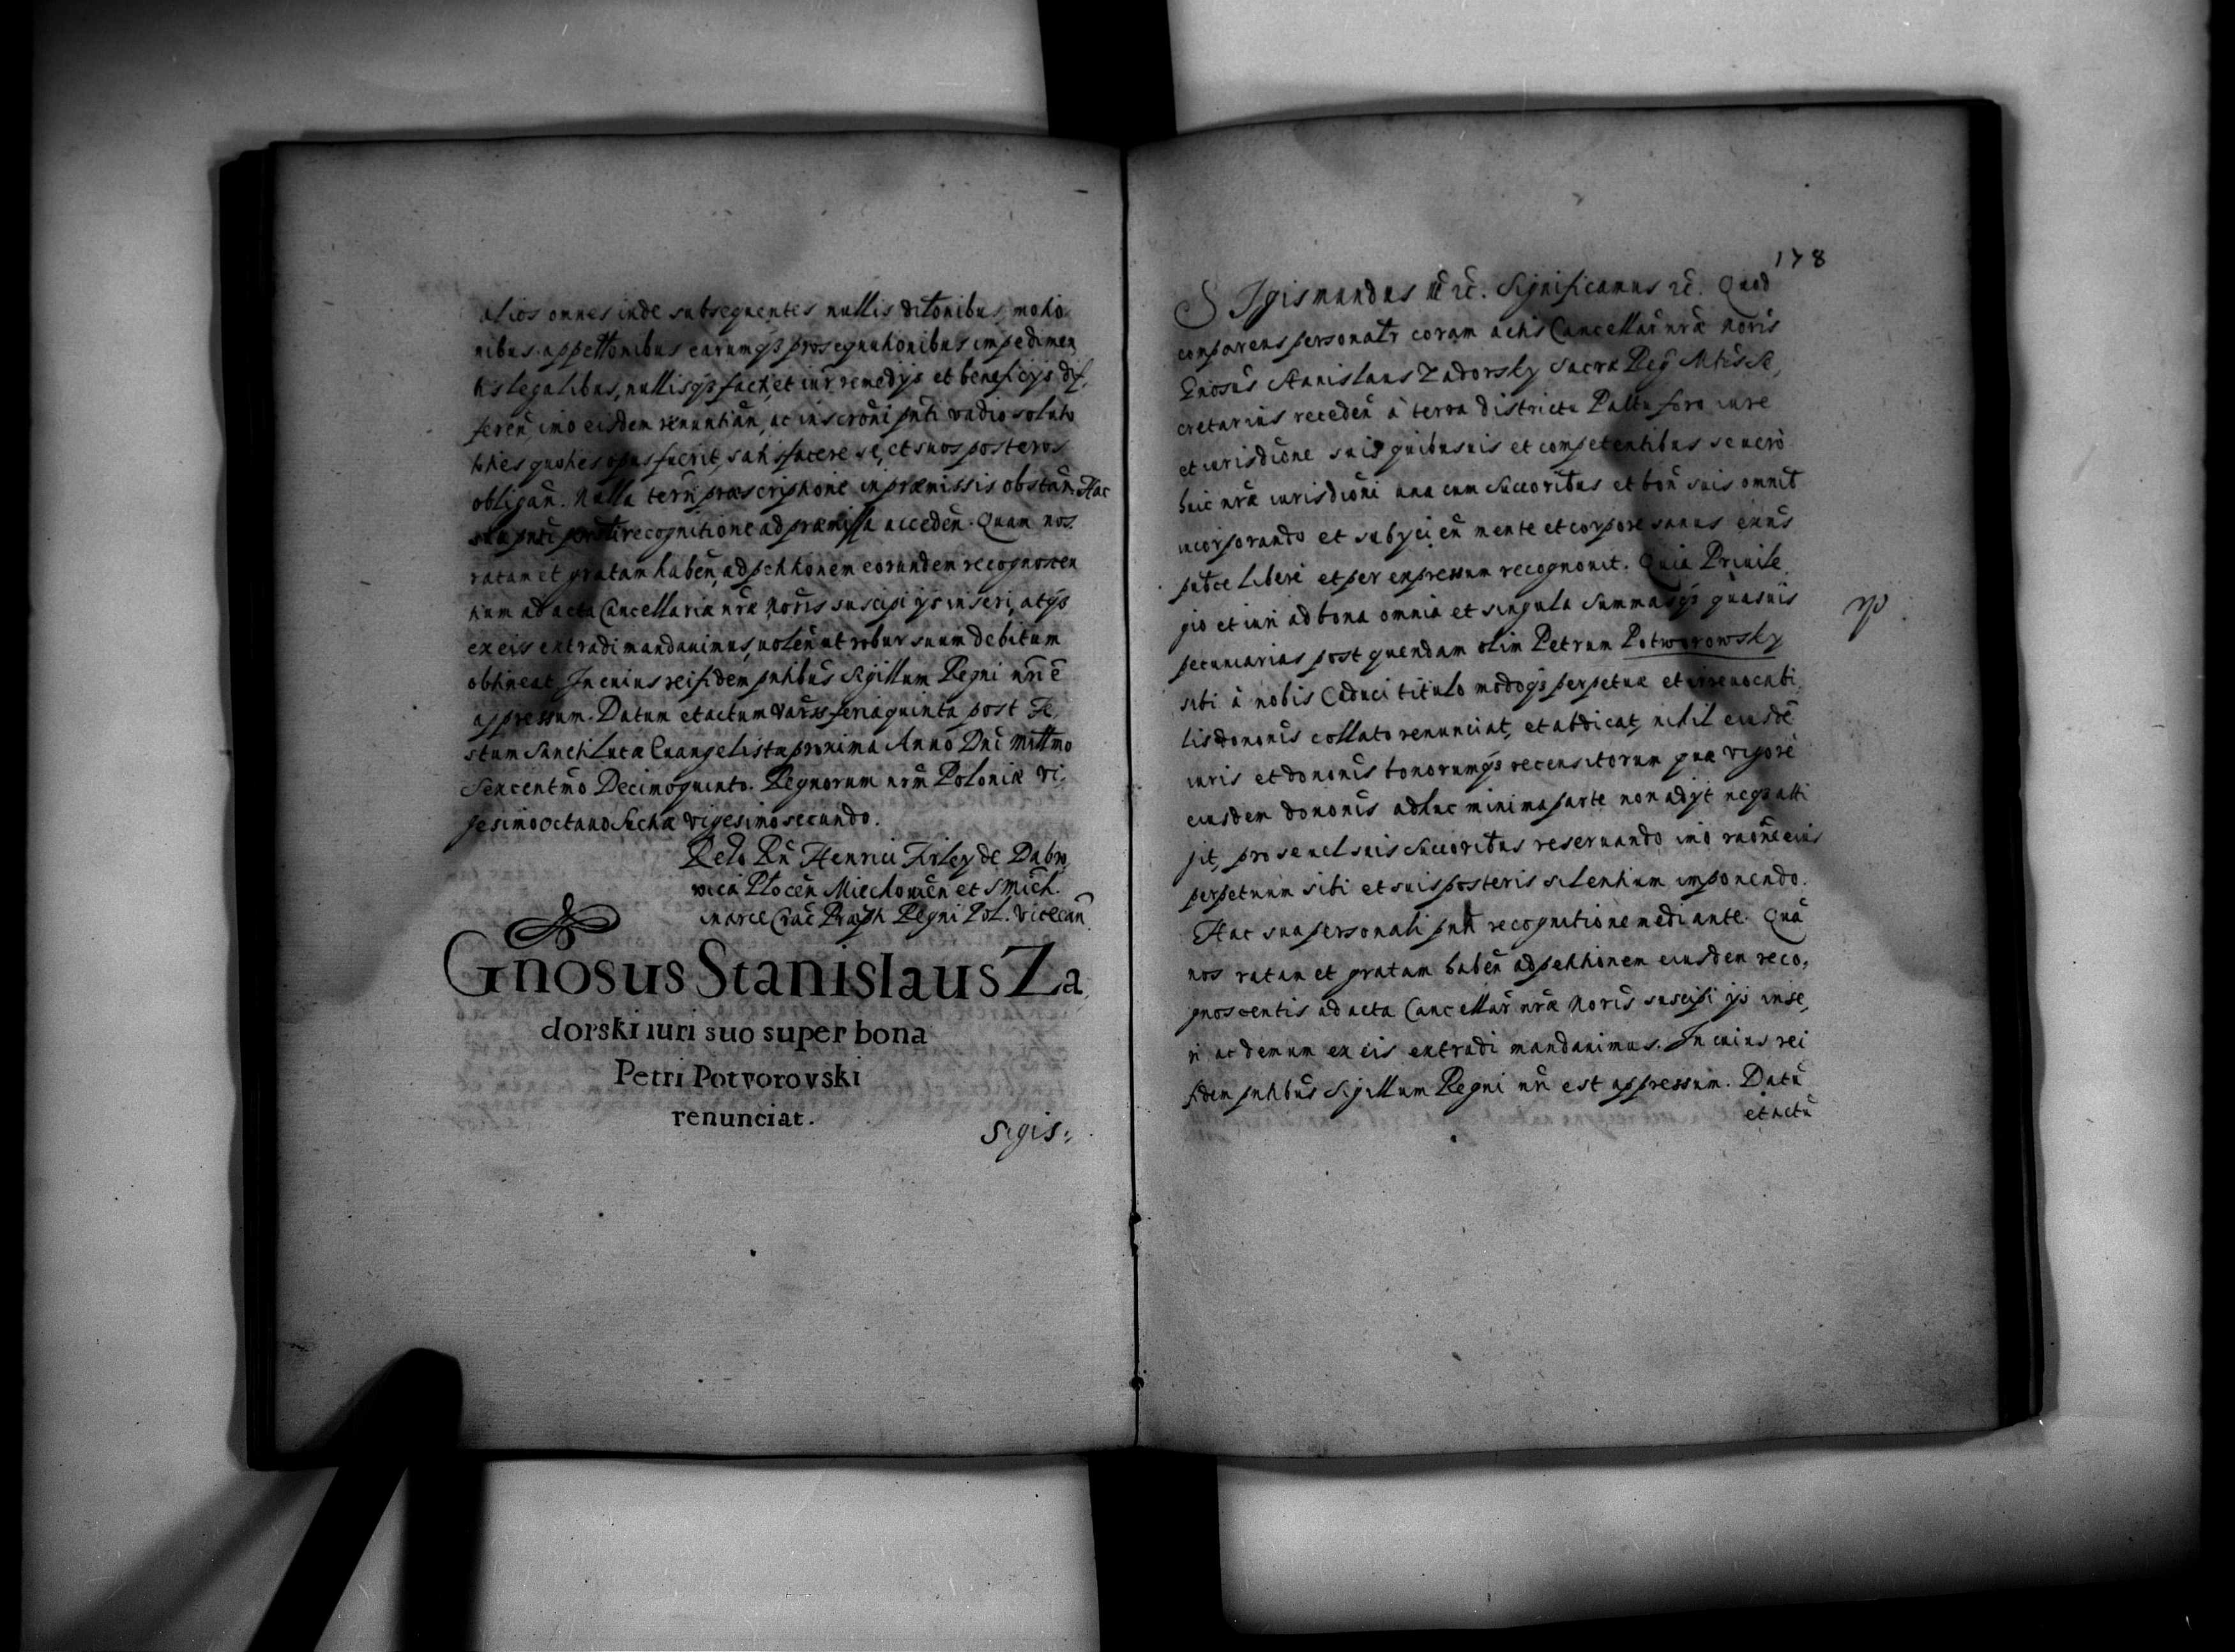 alios omnes inde subsequentes nullis ditonibus, motio
nibus appellonibus earumq prosequutionibus impedimen
tis legalibus, nullisq facti, et iur remedys et beneficys dif,
feren̄, imo eisdem renuntian̄, ac inscroni pn̄ti vadio soluto
toties quoties opus fuerit, satisfacere se, et suos posteros
obligan̄. Nulla terri praescriptione in praemissis obstan̄. Hac
sua pn̄ti recognitione ad praemissa acceden̄. Quam nos
ratam et gratam haben̄, ad petitionem eorundem recognoscen
tium ad acta Cancellariae nrae noris suscipi ys inseri, atq
ex eis extradi mandauimus, uolen̄ ut robur suum debitum
obtineat. In cuius rei fidem pn̄tibus Sigillum Regni nri ē
appressum. Datum et actum Vars feria quinta post Fe,
stum Sancti Lucae Euangelistae proxima Anno Dni Millmo
Sexcentmo Decimoquinto. Regnorum nrm Poloniae vi,
gesimo octauo Sueciae vigesimo secundo.
Relo Rn̄ Henrici Firley de Dabro
vica Plocen̄ Miechouien̄ et S. Mich.
in arce Crac Praep̄ti Regni Pol. Vicecan̄
Gnosus Stanislaus Za,
dorski iuri suo super bona
Petri Potvorovski
renunciat.
Sigis:
178
SIgismundus III rc̄. Significamus rc̄. Quod
comparens personalr coram actis Cancellar̄ nrae noris
Gnosus Stanislaus Zadorsky Sacrae Reg Mtis Se,
cretarius receden̄ à terra districtu Pallu foro iure
et iurisdione suis quibusuis et competentibus se uero
huic nrae iurisdioni una cum Succoribus et bon̄ suis omnib
incorporando et subyicien̄ mente et corpore sanus exn̄s
publce libere et per expressum recognouit. Quia Priuile
gio et iuri ad bona omnia et singula Summasq quasuis
pecuniarias post quendam olim Petrum Potworowsky
sibi à nobis Caduci titulo modoq perpetuae et irreuocabi,
lis dononis collato renunciat, et abdicat, nihil eiusdē
iuris et dononis bonorumq recensitorum quae vigore
eiusdem dononis adhuc minima parte non adyt neq atti
git, pro se uel suis Succoribus reseruando imo raone eius
perpetuum sibi et suis posteris silentium imponendo.
Hac sua personali pn̄ti recognitione mediante. Quā
nos ratam et gratam haben̄ ad petitionem eiusdem reco,
gnoscentis ad acta Cancellar̄ nrae noris suscipi ys inse,
ri ac demum ex eis extradi mandauimus. In cuius rei
fidem pn̄tibus Sigillum Regni nri est appressum. Datū
et actū